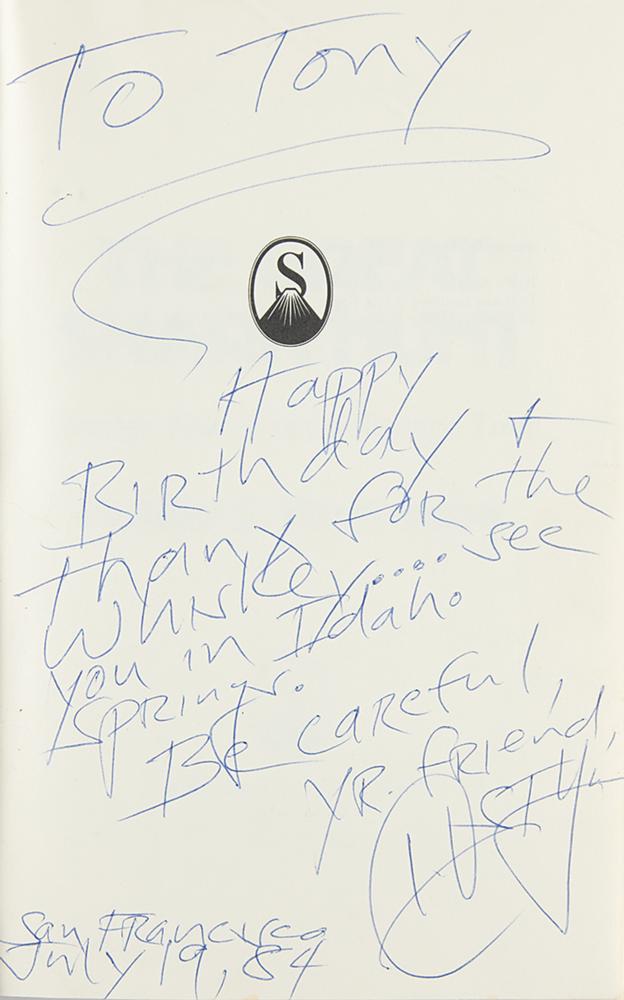 To Tony
S
Happy
Birthday +
thanx for the
Whiskey.... see
you in Idaho
Springs.
Be careful,
Yr. friend,
HST
San Francisco
July 19, 84